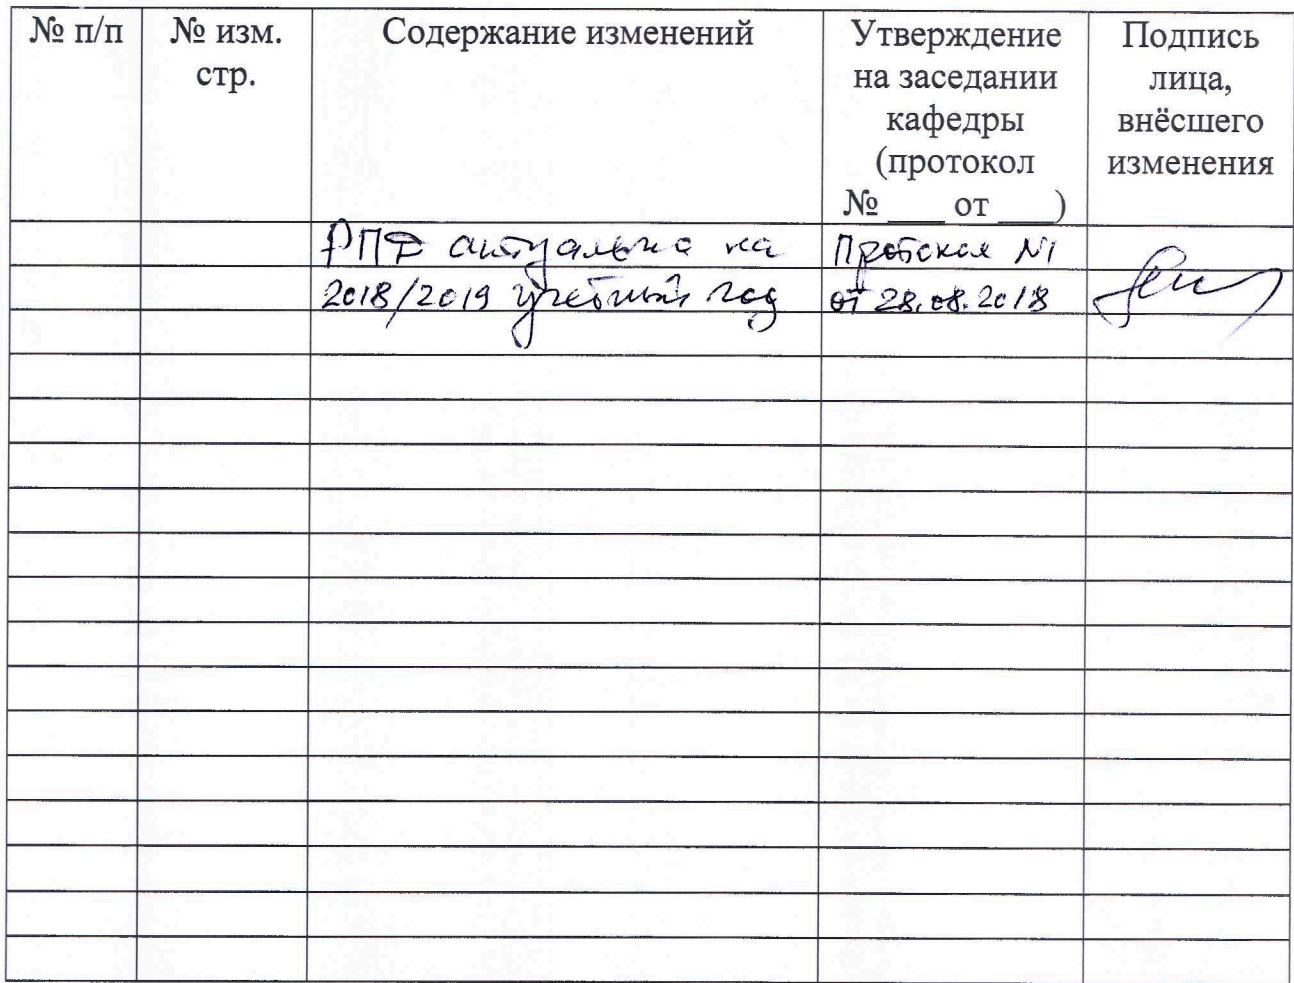 № п/п
№ изм.
стр.
Содержание изменений
Утверждение
на заседании
кафедры
(протокол
№ ___ от ___)
Подпись
лица,
внёсшего
изменения
актуальна на
2018/2019 учебный год
Протокол №1
от 28.08.2018